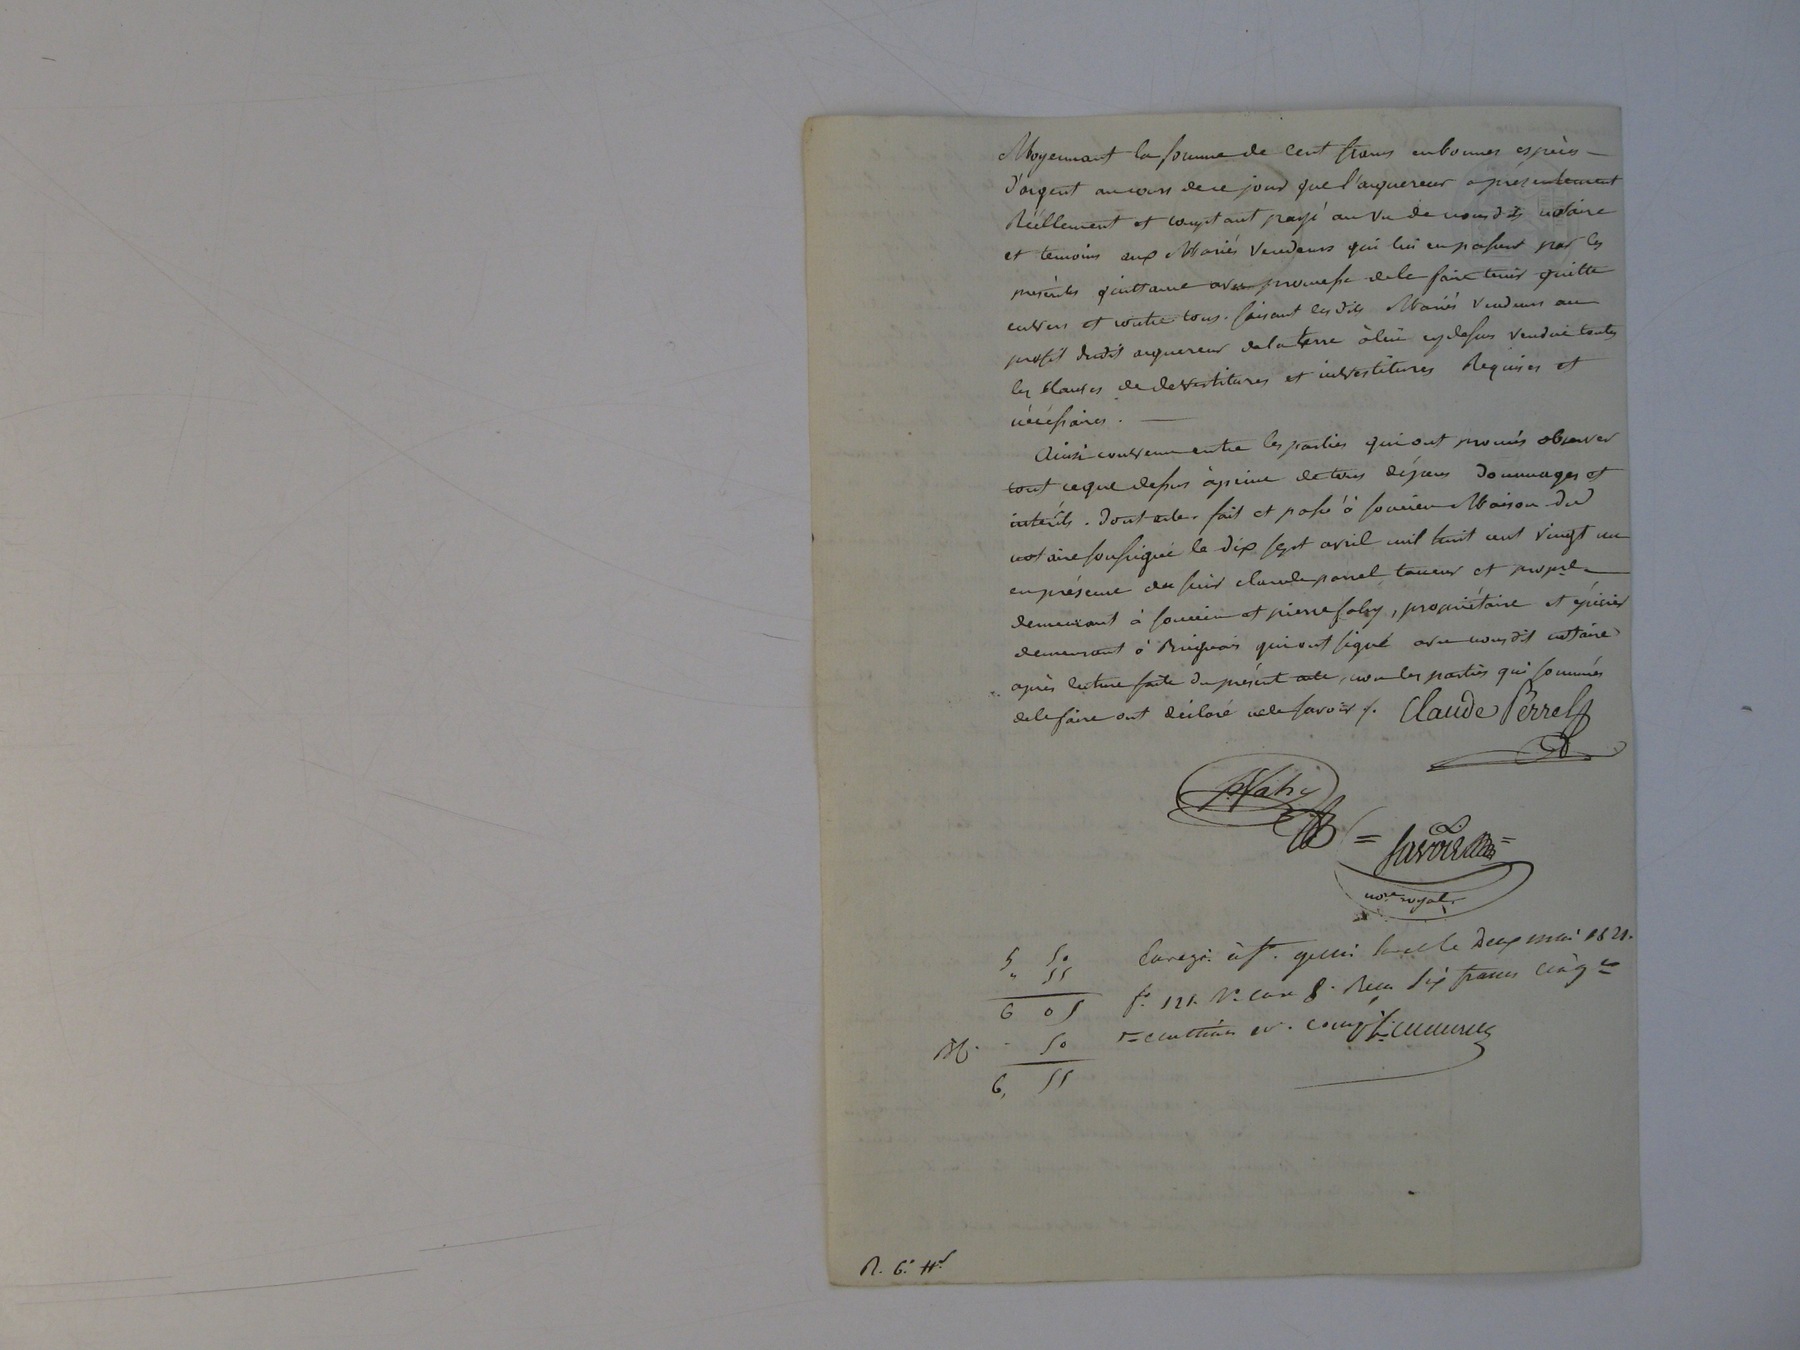 Moyennant la somme de cent francs en bonnes espèces
d'argent au cours de ce jour que l'acquereur a présentement
Réellement et comptant payé au vu de nous dit notaire
et temoins aux Mariés Vendeurs qui lui en passent par les
présentes quittance avec promesse de le faire tenir quitte
envers et contre tous. faisant les dits Mariés Vendeurs au
profit dudit acquereur de la terre à lui cy dessus vendue toutes
les Clauses de devestitures et investitures Requises et
nécéssaires.
Ainsi convenu entre les parties qui ont promis observer
tout ce que dessus à peine de tous dépens dommages et
intérêts. Dont acte. fait et passé à Maison du
notaire soussigné le dix sept avril mil huit cent vingt un
en présence de sieur claude perrel tanneur et propre
demeurant à et pierre faby, propriétaire et épicier
demeurant à qui ont signé avec nous dit notaire
après lecture faite du présent acte, non les parties qui sommés
de le faire ont déclaré ne le savoir /. Claude Perrel
P. Faby
nore royal
5 50
" 55
6 05
50
6, 55
Enregé. à St. le Deux mai 1821.
fo. 121. Vo. case 8. Reçu six francs cinqte
centimes
R. 6. H.